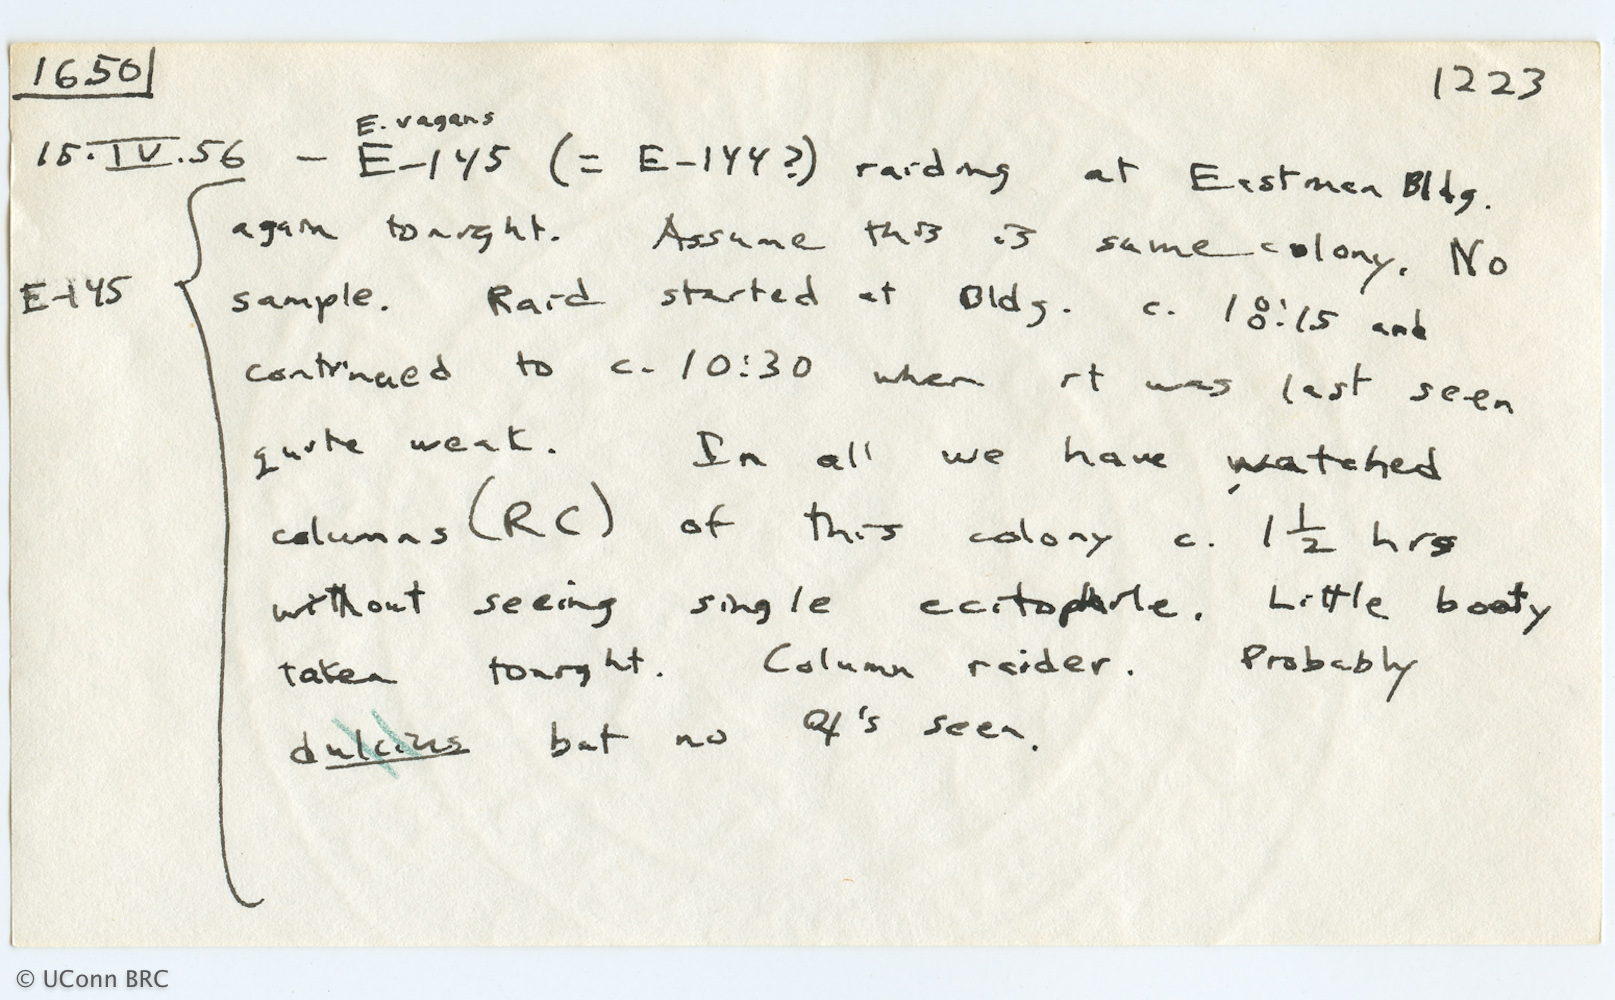 1650
1223
E. vagans
15.IV.56 - E-145 (= E-144?) raiding at Eastman Bldg.
again tonight. Assume this is same colony. No
E-145
sample. Raid started at Bldg. c. 18:15 and
continued to c. 10:30 when it was last seen
quite weak. In all we have watched
columns (RC) of this colony c. 1 1/2 hrs
without seeing single ecitophile. Little booty
taken tonight. Column raider. Probably
dulcius but no 's seen.
© UConn BRC